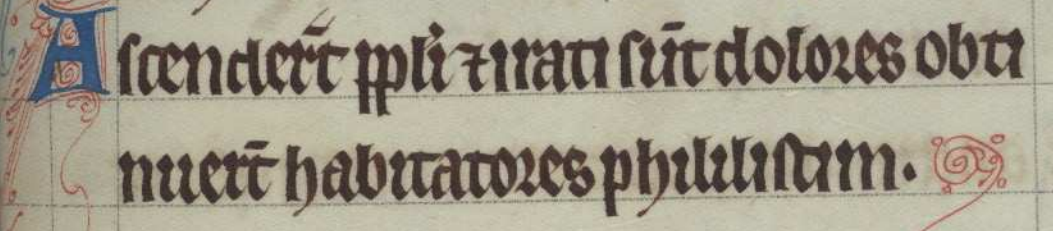 Ascender̄t ppli ⁊ irati sūt dolores obti
nuer̄t habitatores phililistiim.